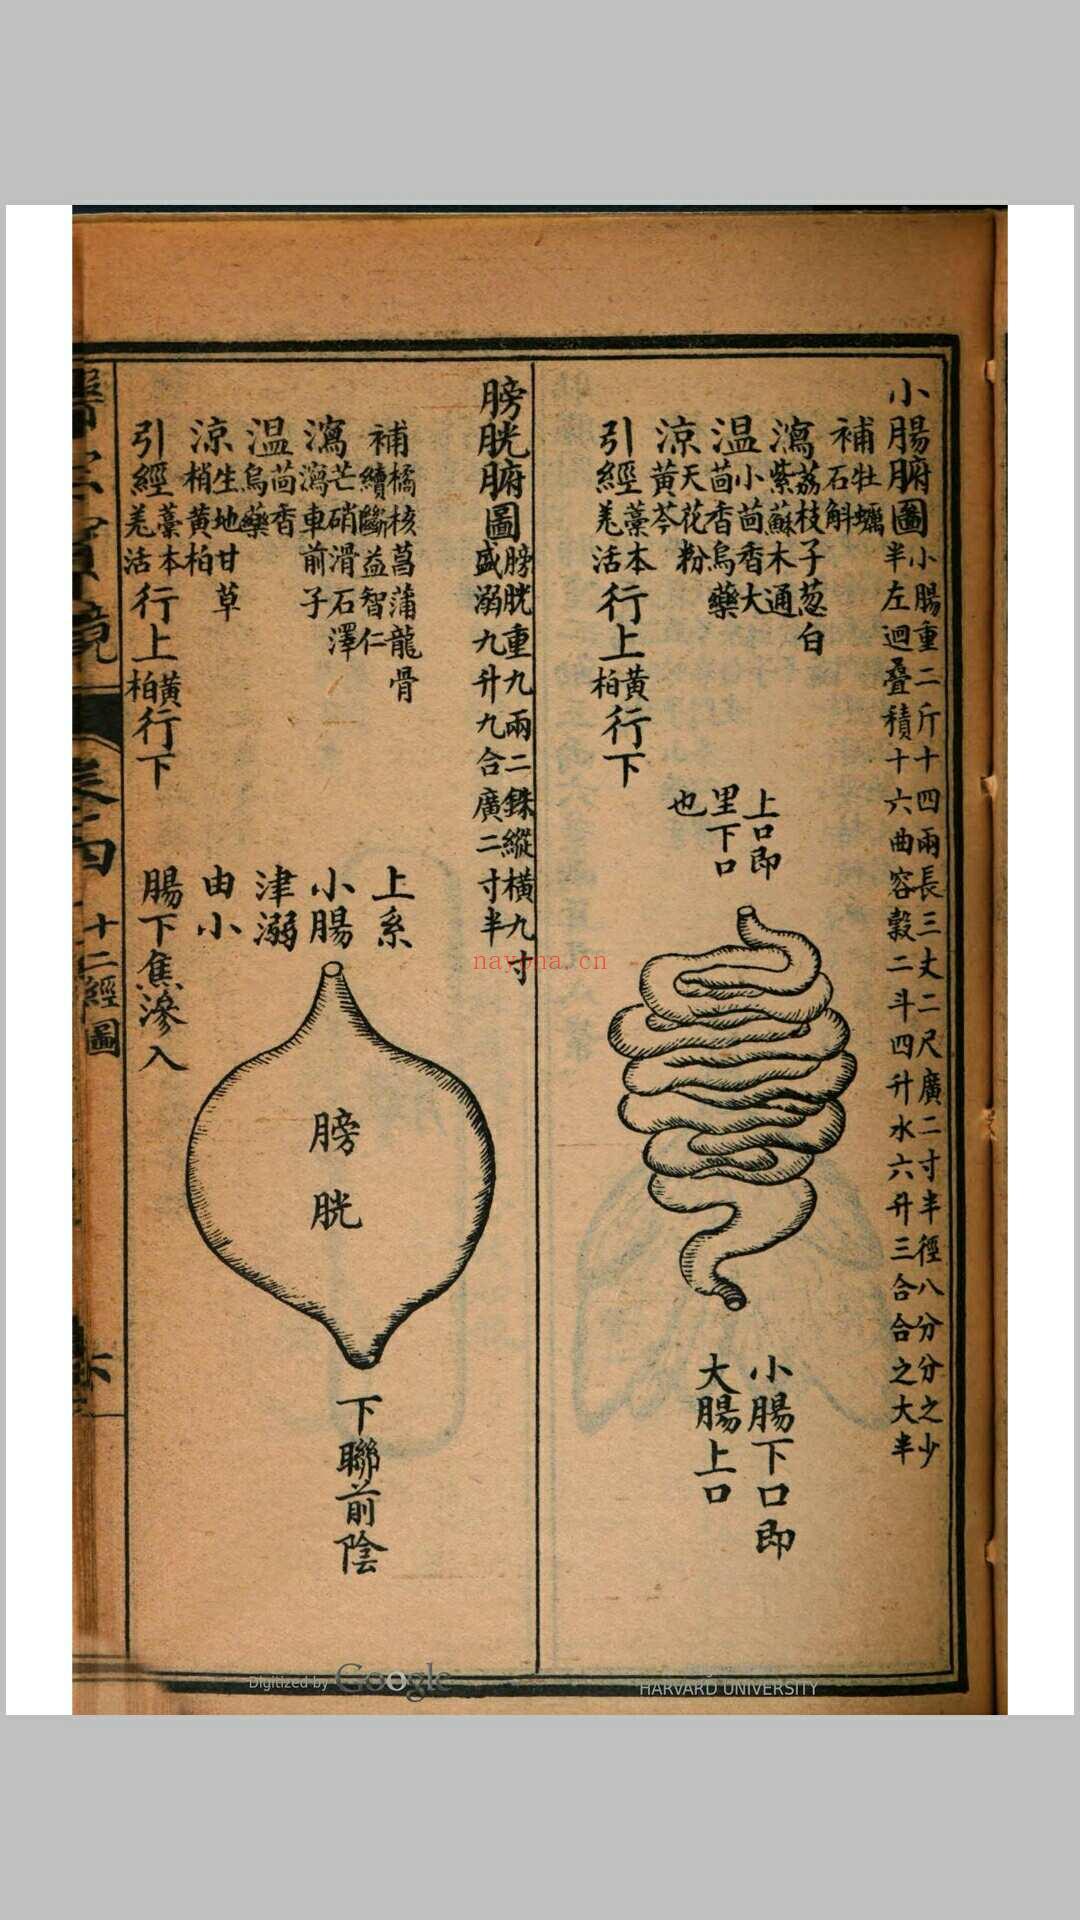 小腸腑圖
小腸重二斤十四兩長三丈二尺廣二寸半徑八分分之少
半左迴疊積十六曲容穀二斗四升水六升三合合之大半
補
牡蠣
石斛
瀉
荔枝子葱白
紫蘇木通
温
小茴香大
茴香烏藥
涼
天花粉
黃芩
引經
藁本
羌活
行上
黃
柏
行下
上口即
里下口
也
小腸下口即
大腸上口
膀胱腑圖
膀胱重九兩二銖縱橫九寸
盛溺九升九合廣二寸半
補
橘核菖蒲龍骨
續斷益智仁
瀉
芒硝滑石澤
瀉車前子
温
茴香
烏藥
涼
生地甘草
梢黃柏
引經
藁本
羌活
行上
黃
柏
行下
上系
小腸
津溺
由小
腸下焦滲入
膀
胱
下聯前陰
卷四
十二經圖
naypna.cn
Digitized by Google
HARVARD UNIVERSITY